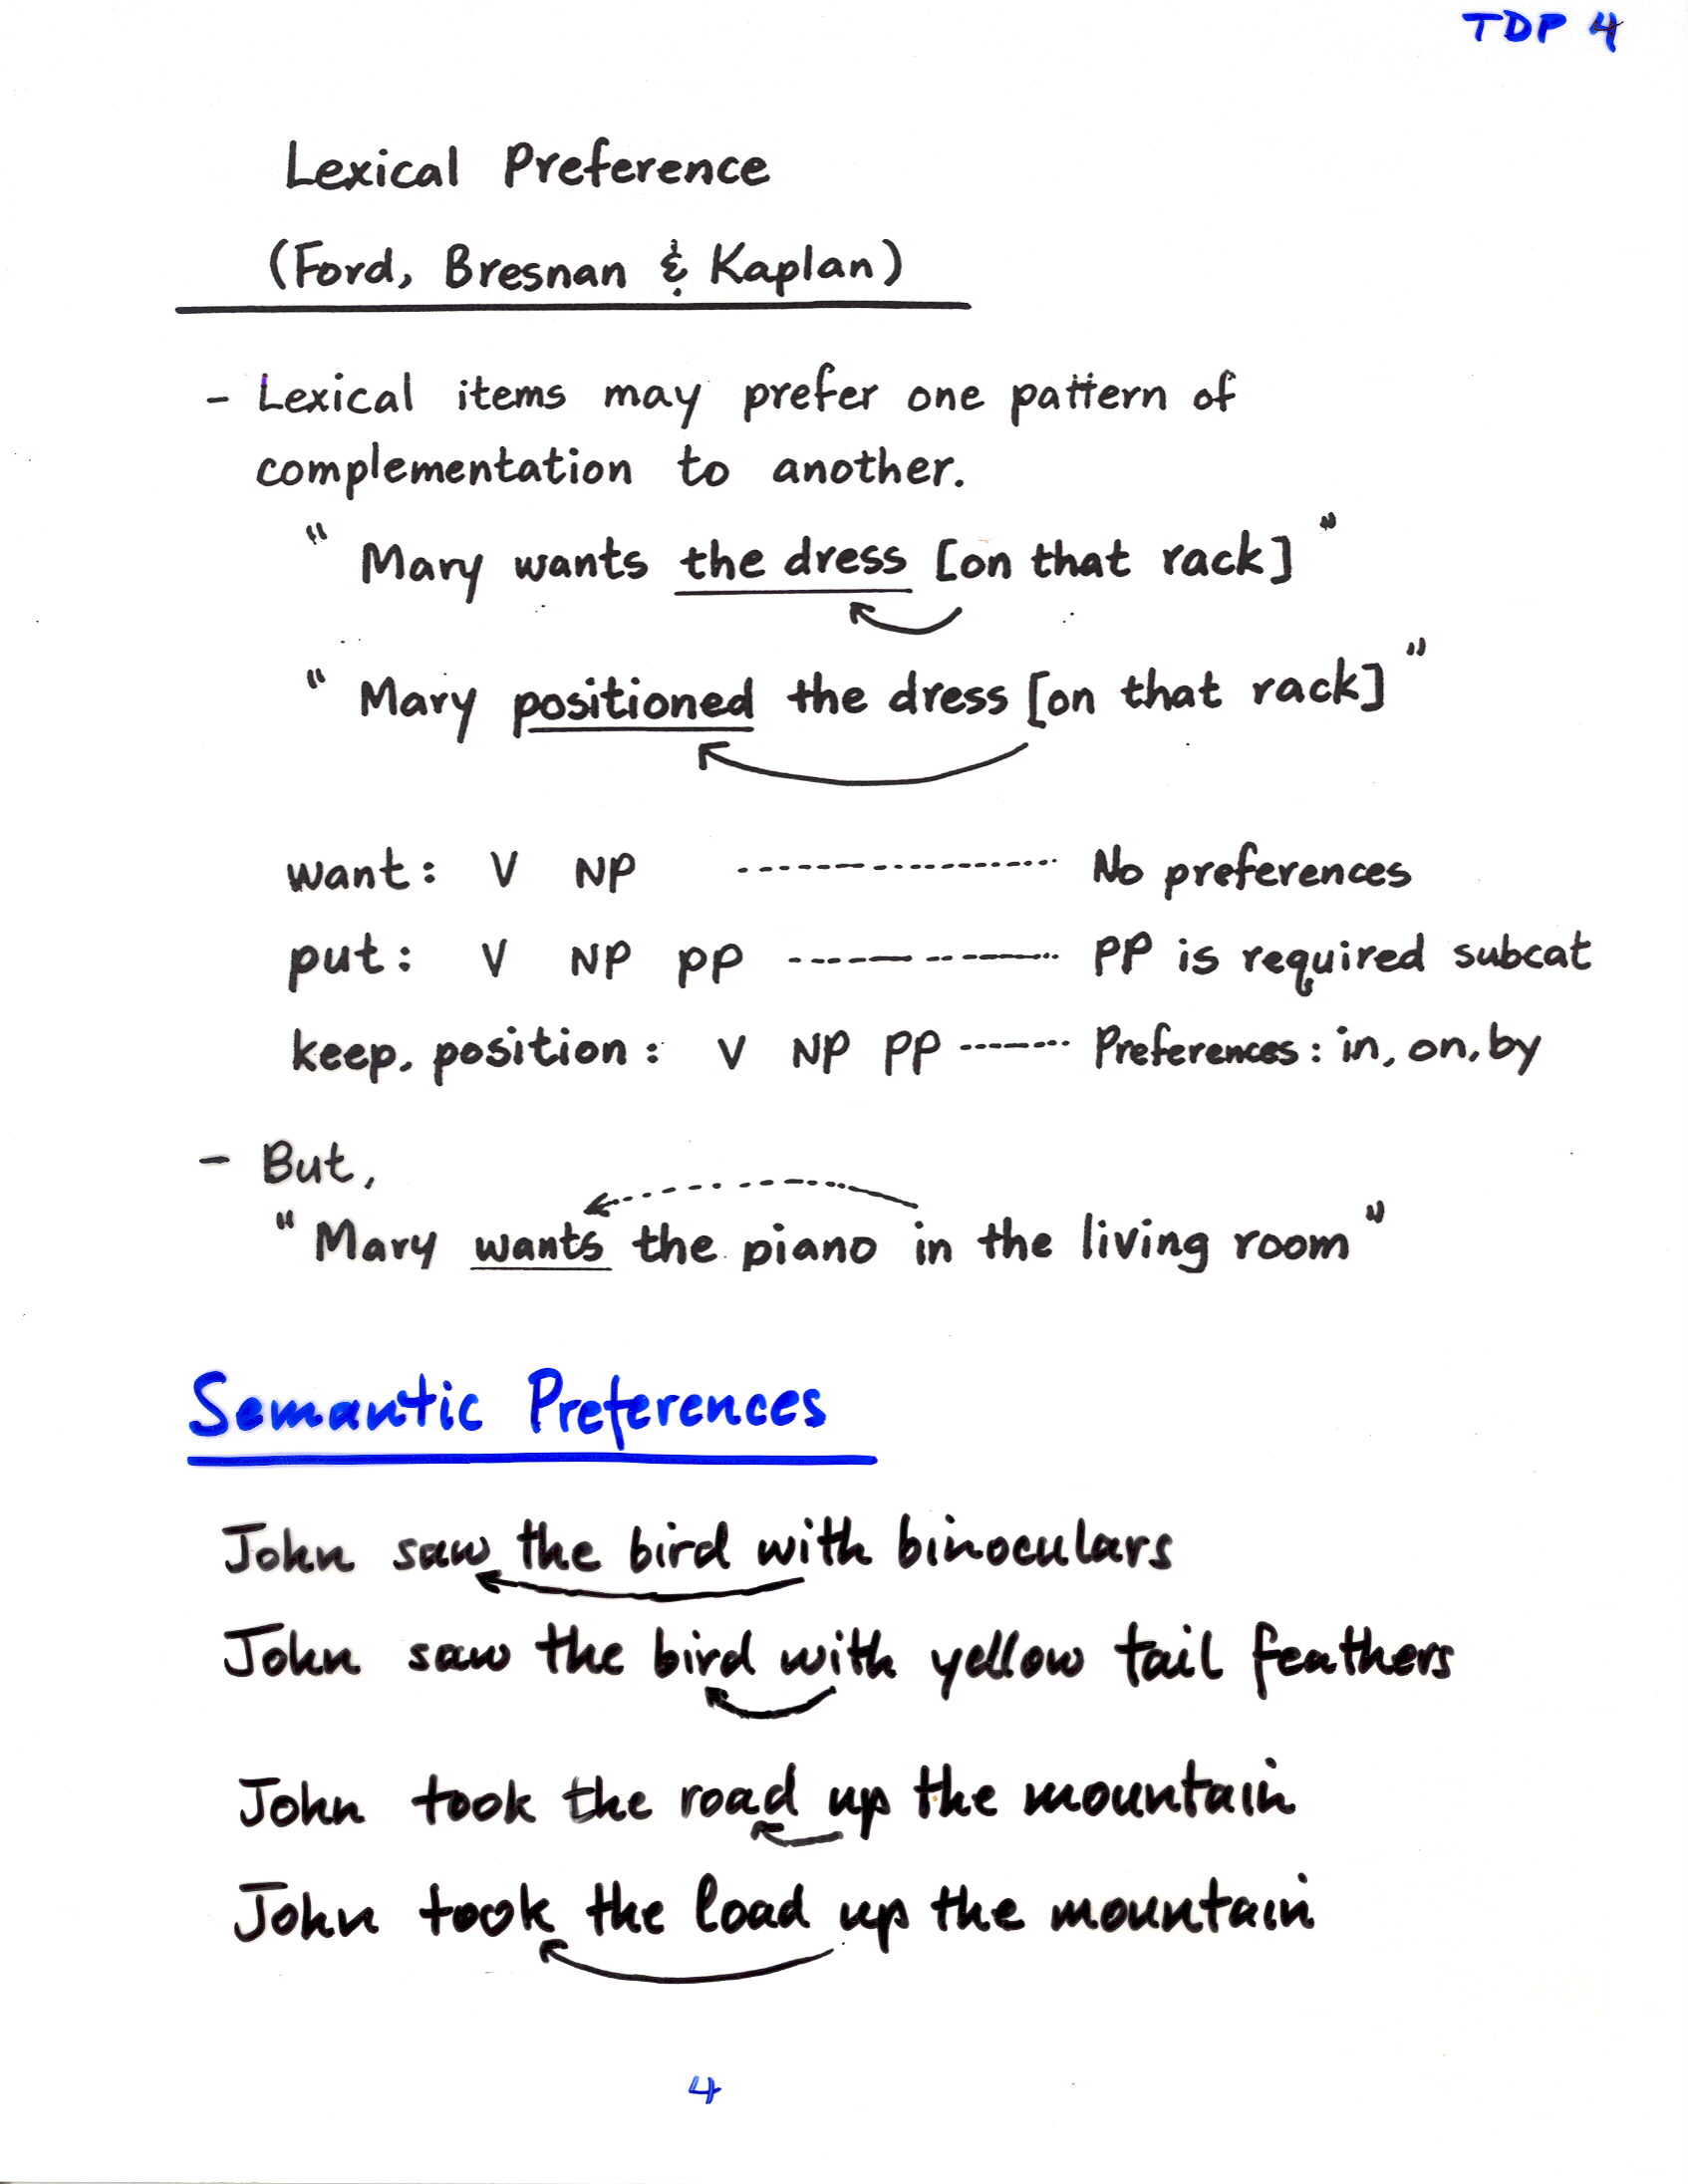 TDP 4
Lexical Preference
(Ford, Bresnan & Kaplan)
- Lexical items may prefer one pattern of
complementation to another.
" Mary wants the dress [on that rack] "
" Mary positioned the dress [on that rack] "
want: V NP ------------------- No preferences
put: V NP PP ---------------- PP is required subcat
keep, position: V NP PP ------- Preferences: in, on, by
- But,
" Mary wants the piano in the living room "
Semantic Preferences
John saw the bird with binoculars
John saw the bird with yellow tail feathers
John took the road up the mountain
John took the load up the mountain
4